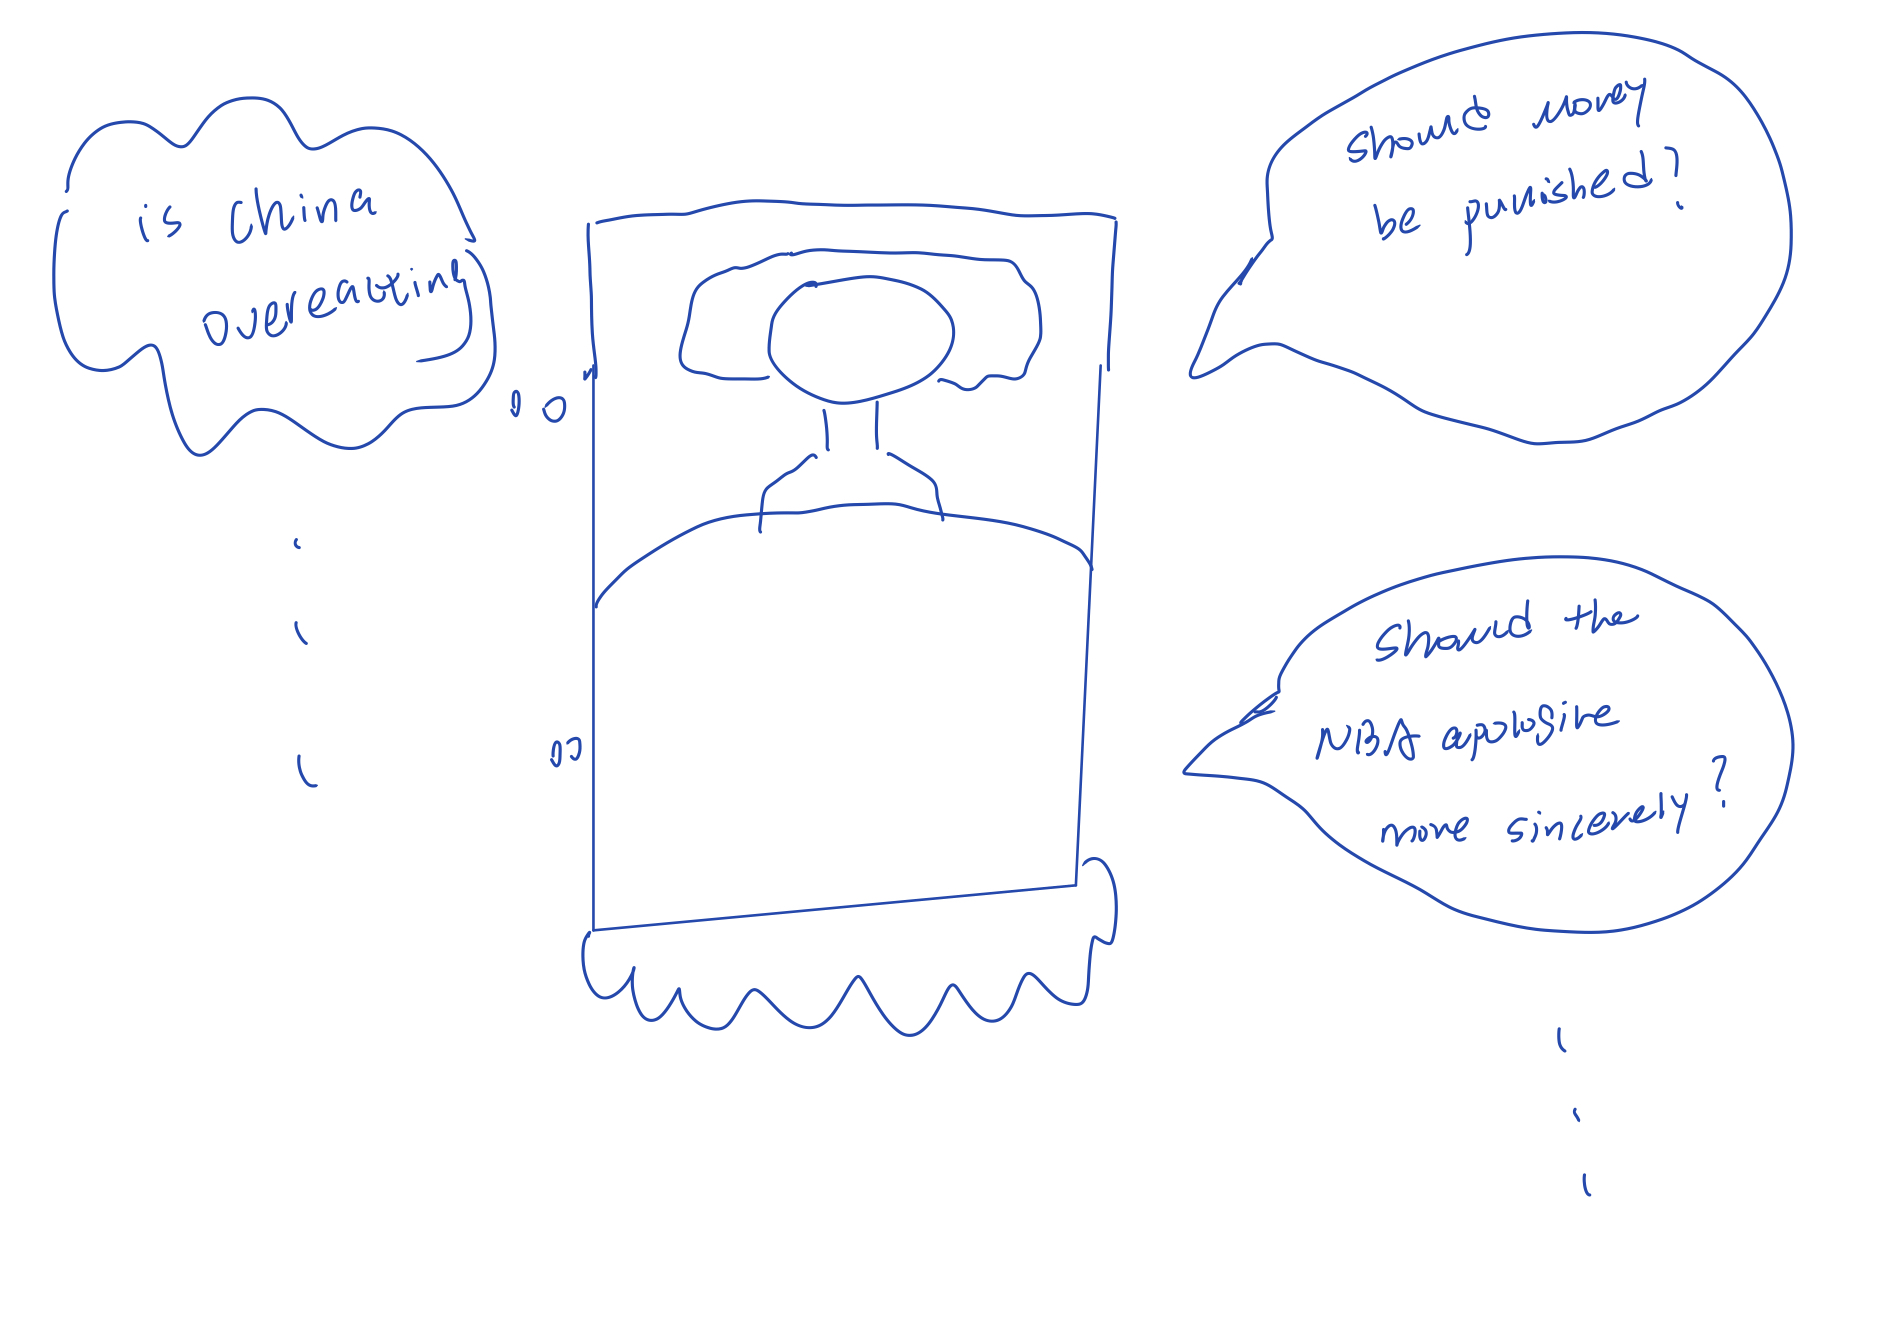 is China
overeacting
should Morey
be punished?
Should the
NBA apologire
more sincerely?